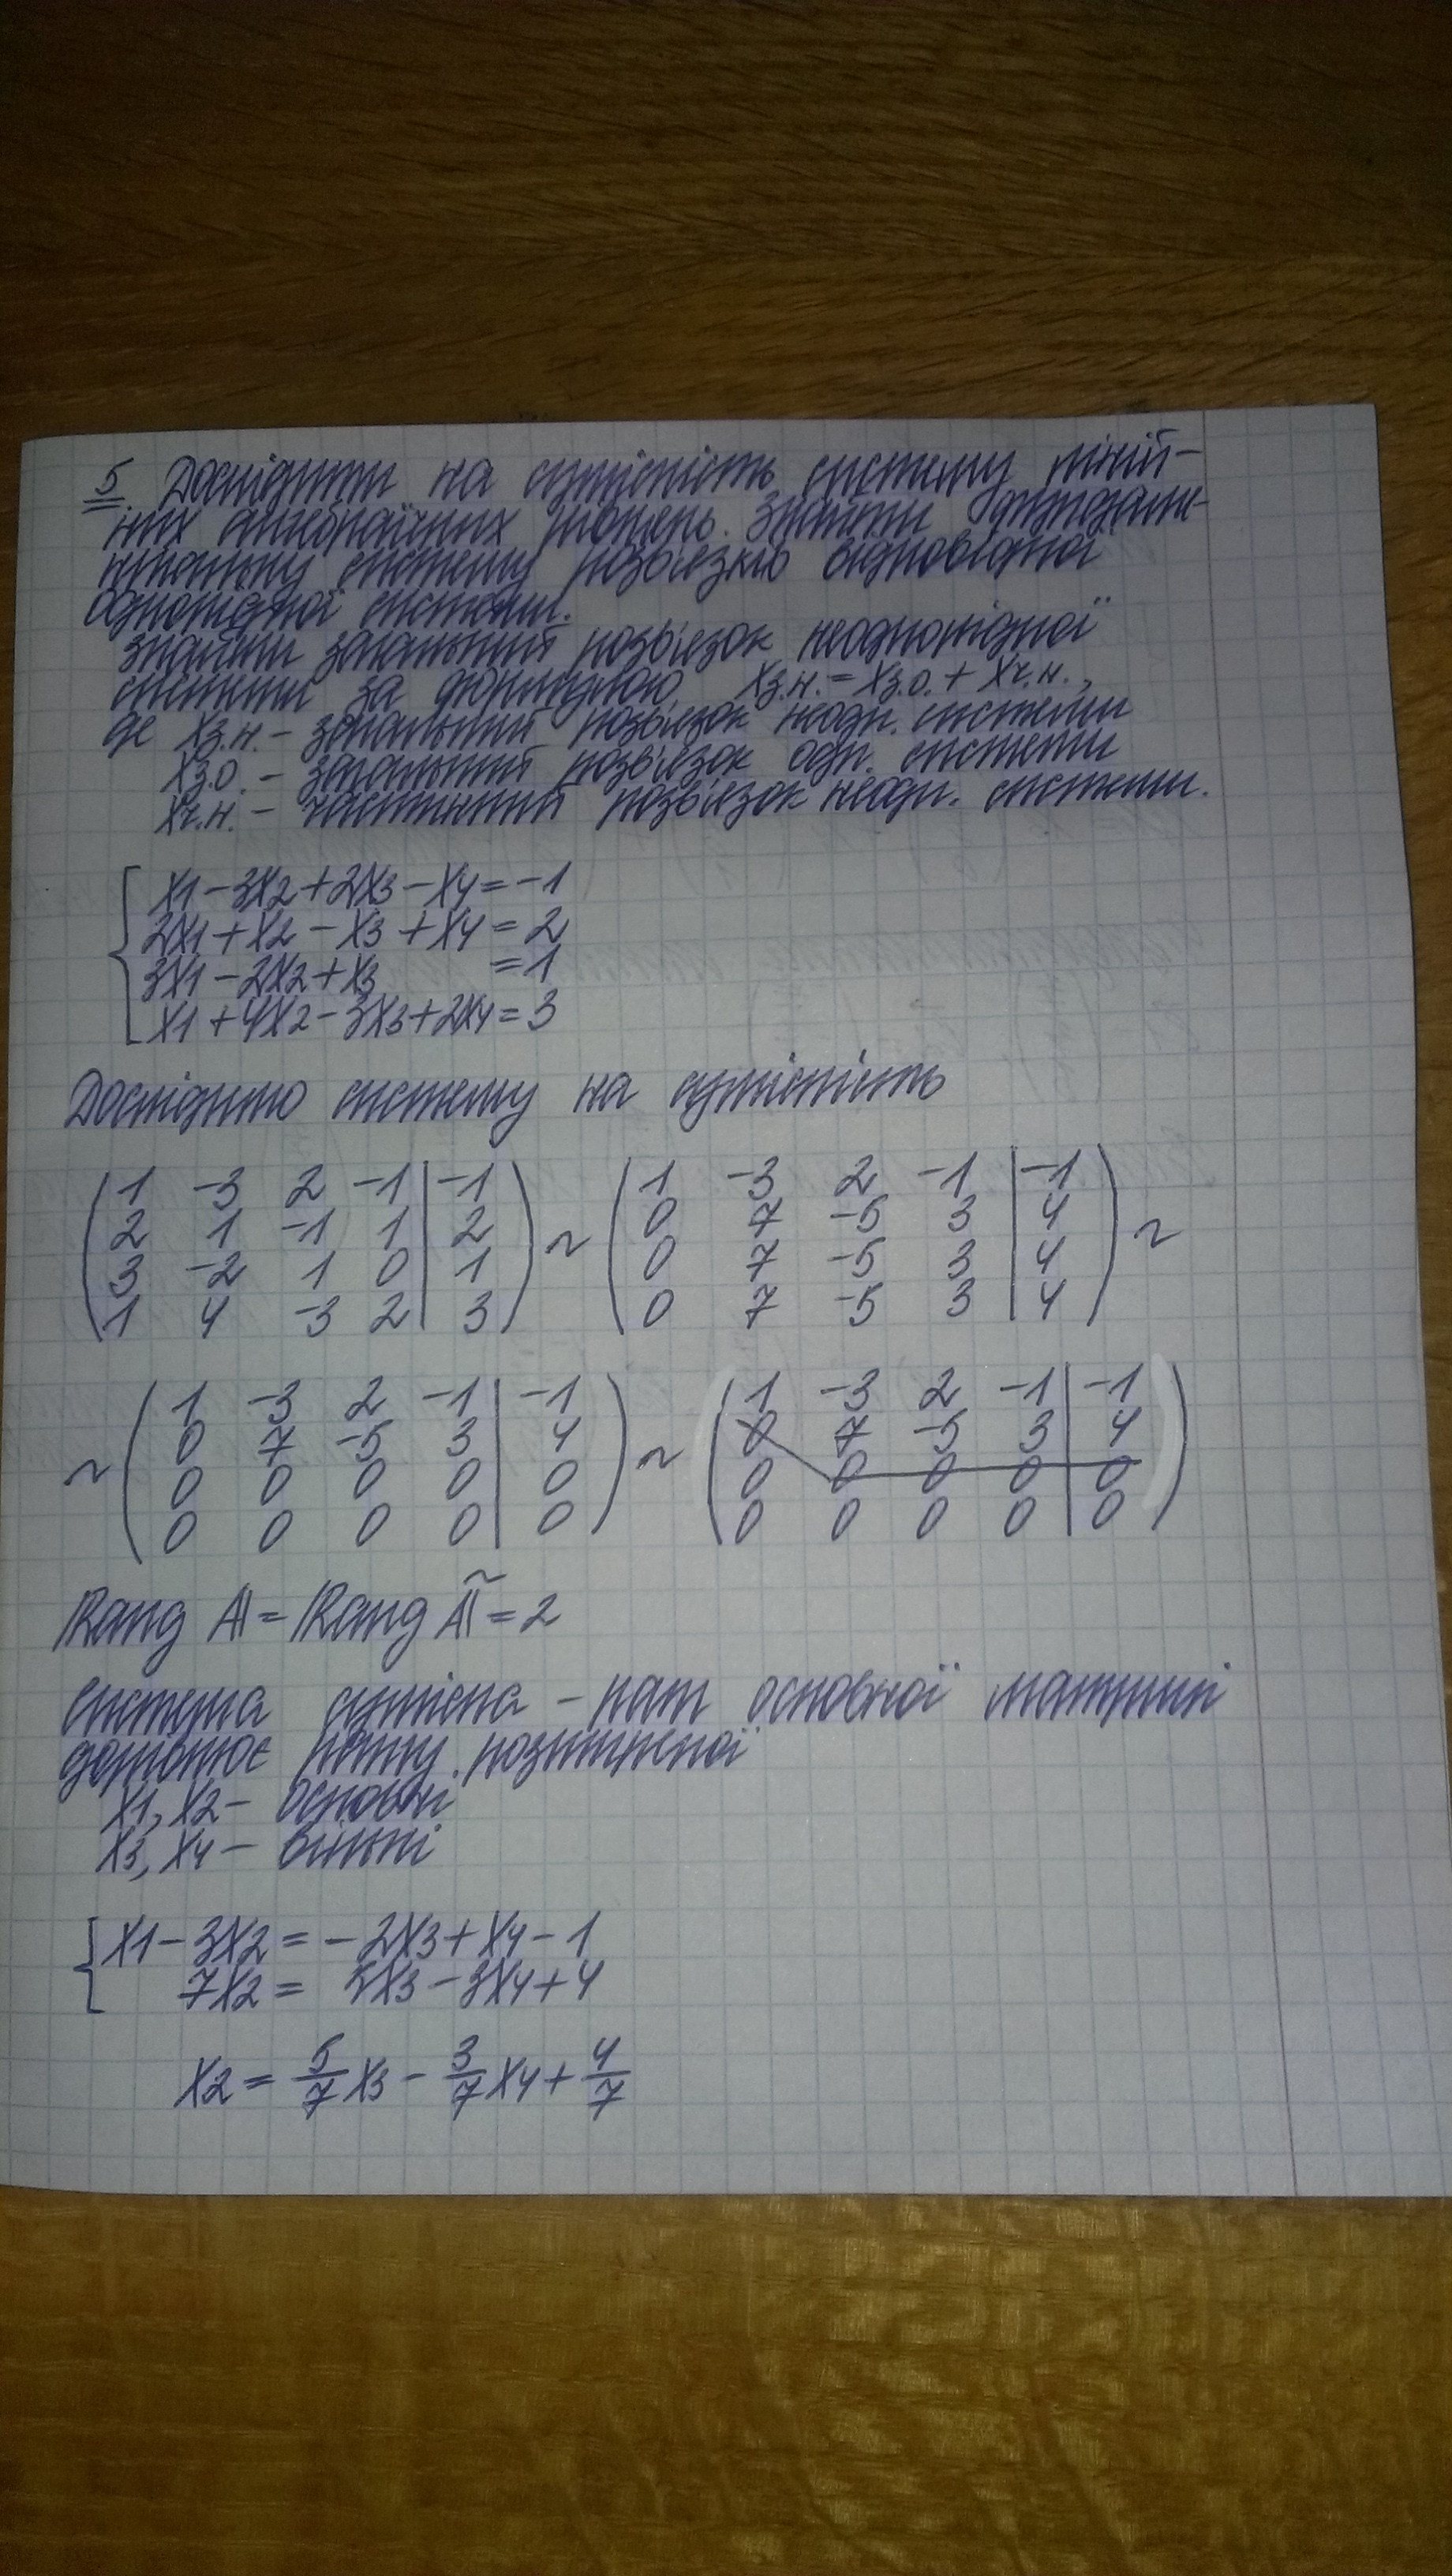 5. Дослідити на сумісність систему ліній-
них алгебраїчних рівнянь. Знайти фундамен-
тальну систему розв'язків відповідної
однорідної системи.
Знайти загальний розв'язок неоднорідної
системи за формулою Xз.н. = Xз.о. + Xч.н.,
де Xз.н. – загальний розв'язок неодн. системи
Xз.о. – загальний розв'язок одн. системи
Xч.н. – частинний розв'язок неодн. системи.
x1 - 3x2 + 2x3 - x4 = -1
2x1 + x2 - x3 + x4 = 2
3x1 - 2x2 + x3 = 1
x1 + 4x2 - 3x3 + 2x4 = 3
Дослідимо систему на сумісність
( 1 -3 2 -1 | -1 ) ~ ( 1 -3 2 -1 | -1 ) ~
2 1 -1 1 | 2   0 7 -5 3 | 4
3 -2 1 0 | 1   0 7 -5 3 | 4
1 4 -3 2 | 3   0 7 -5 3 | 4
~ ( 1 -3 2 -1 | -1 ) ~ ( 1 -3 2 -1 | -1 )
0 7 -5 3 | 4   0 7 -5 3 | 4
0 0 0 0 | 0   0 0 0 0 | 0
0 0 0 0 | 0   0 0 0 0 | 0
Rang A = Rang Ã = 2
Система сумісна – ранг основної матриці
дорівнює рангу розширеної
x1, x2 – основні
x3, x4 – вільні
x1 - 3x2 = -2x3 + x4 - 1
7x2 = 5x3 - 3x4 + 4
x2 = 5/7 x3 - 3/7 x4 + 4/7